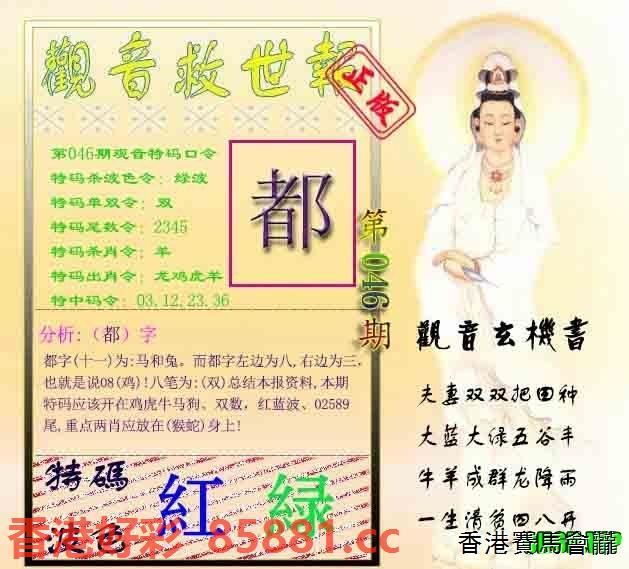 觀音救世報
正版
第046期观音特码口令
特码杀波色令：绿波
特码单双令：双
特码尾数令：2345
特码杀肖令：羊
特码出肖令：龙鸡虎羊
特中码令：03.12.23.36
都
第046期
分析:（都）字
都字(十一)为:马和兔。而都字左边为八,右边为三,
也就是说08(鸡)!八笔为:(双)总结本报资料,本期
特码应该开在鸡虎牛马狗、双数，红蓝波、02589
尾,重点两肖应放在(猴蛇)身上!
特碼
波色
紅
绿
觀音玄機書
夫妻双双把田种
大蓝大绿五谷丰
牛羊成群龙降雨
一生清贫四八开
香港好彩 85881.cc
香港賽馬會